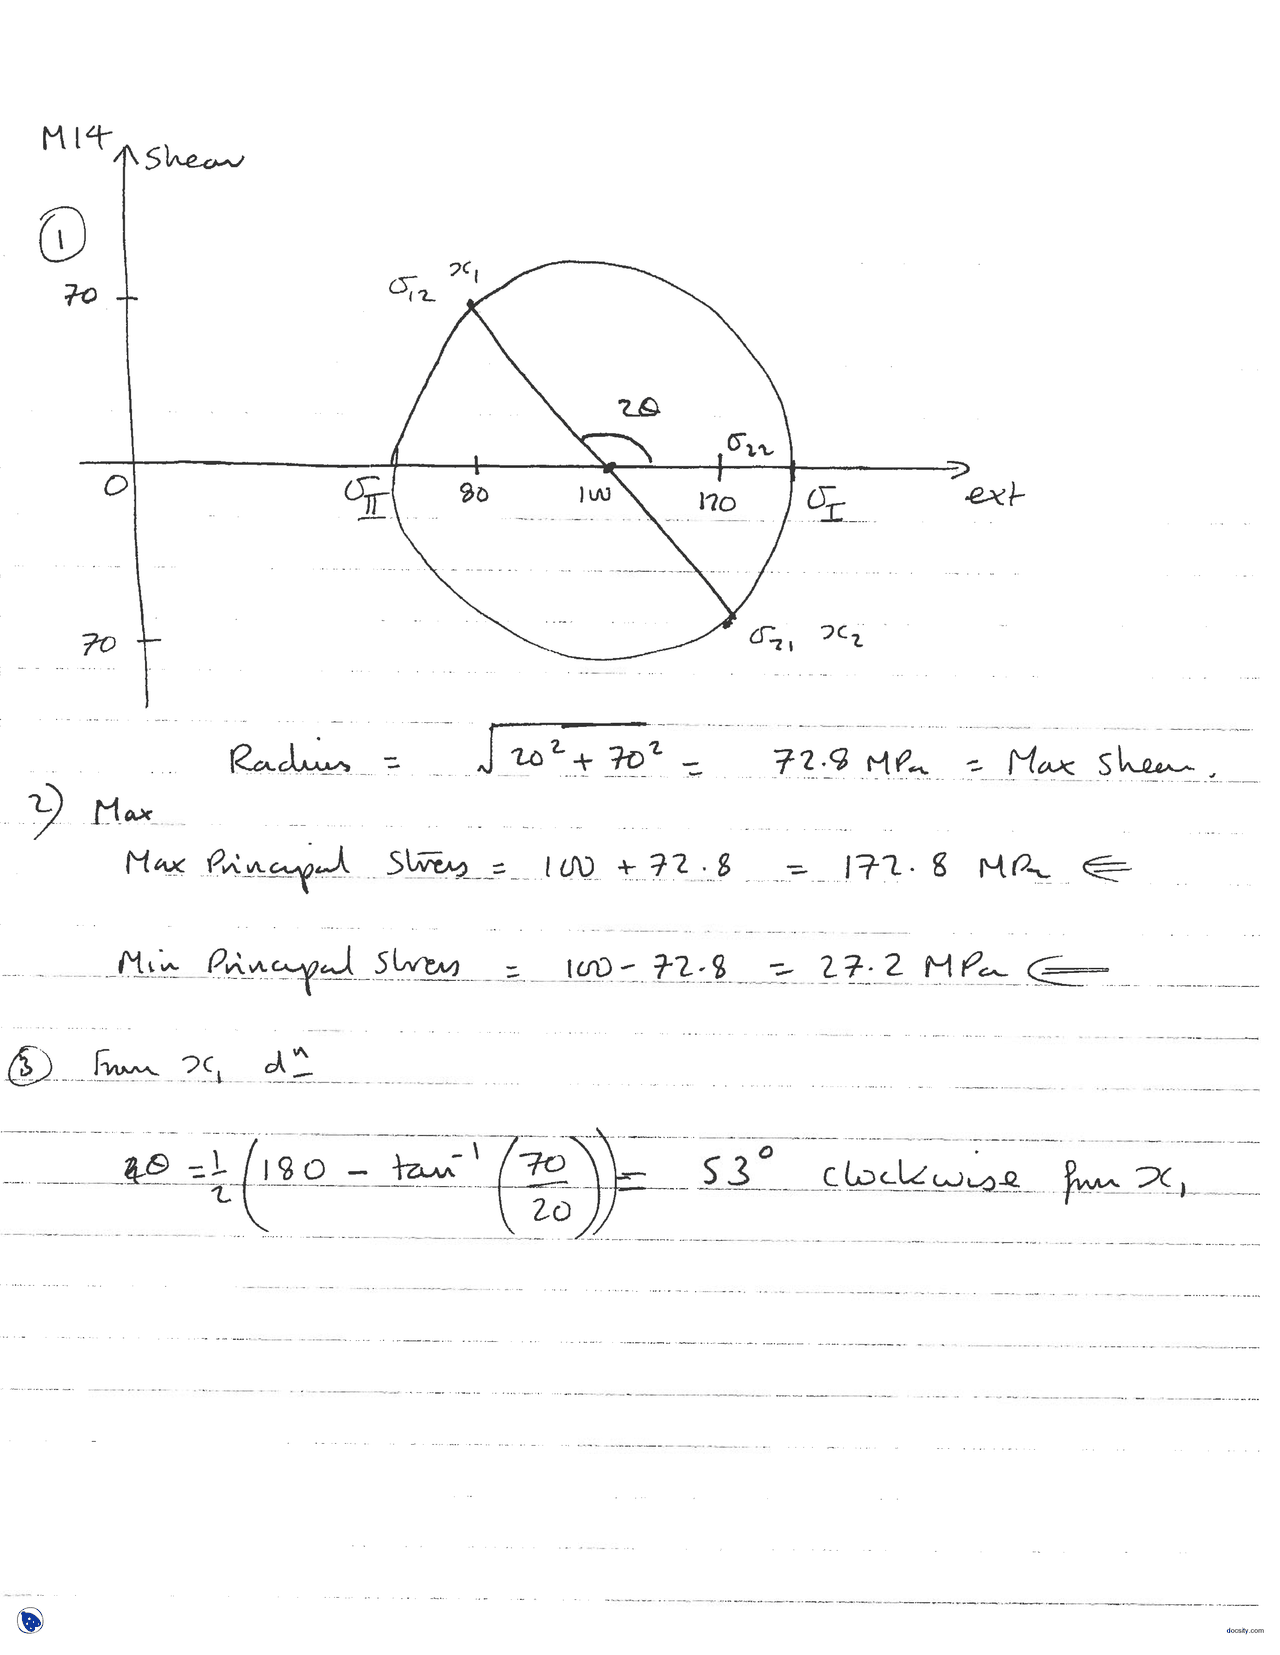 M14
Shear
1
70
σ12 x1
2θ
σ22
0
σII
80
100
120
σI
ext
70
σ21 x2
Radius = √20² + 70² = 72.8 MPa = Max Shear.
2) Max
Max Principal Stress = 100 + 72.8 = 172.8 MPa ⇐
Min Principal Stress = 100 - 72.8 = 27.2 MPa ⇐
3 From x1 dⁿ
θ = 1/2 (180 - tan⁻¹ (70/20)) = 53° clockwise from x1
docsity.com